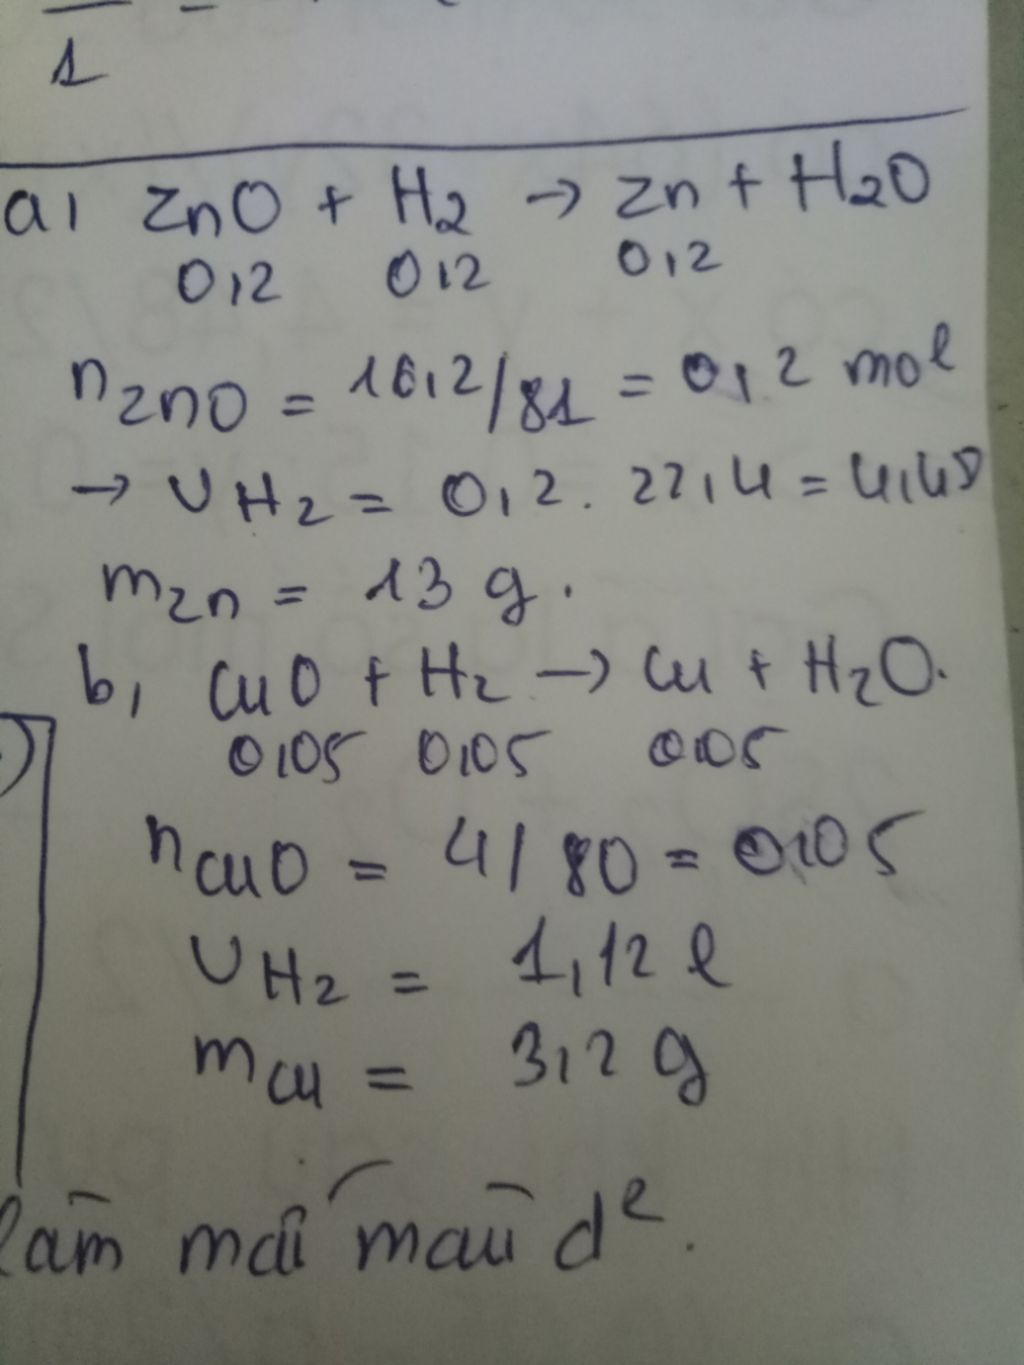 1
a, ZnO + H2 → Zn + H2O
0,2 0,2 0,2
nZnO = 16,2/81 = 0,2 mol
→ VH2 = 0,2. 22,4 = 4,48
mZn = 13 g.
b, CuO + H2 → Cu + H2O.
0,05 0,05 0,05
nCuO = 4/80 = 0,05
VH2 = 1,12 l
mCu = 3,2 g